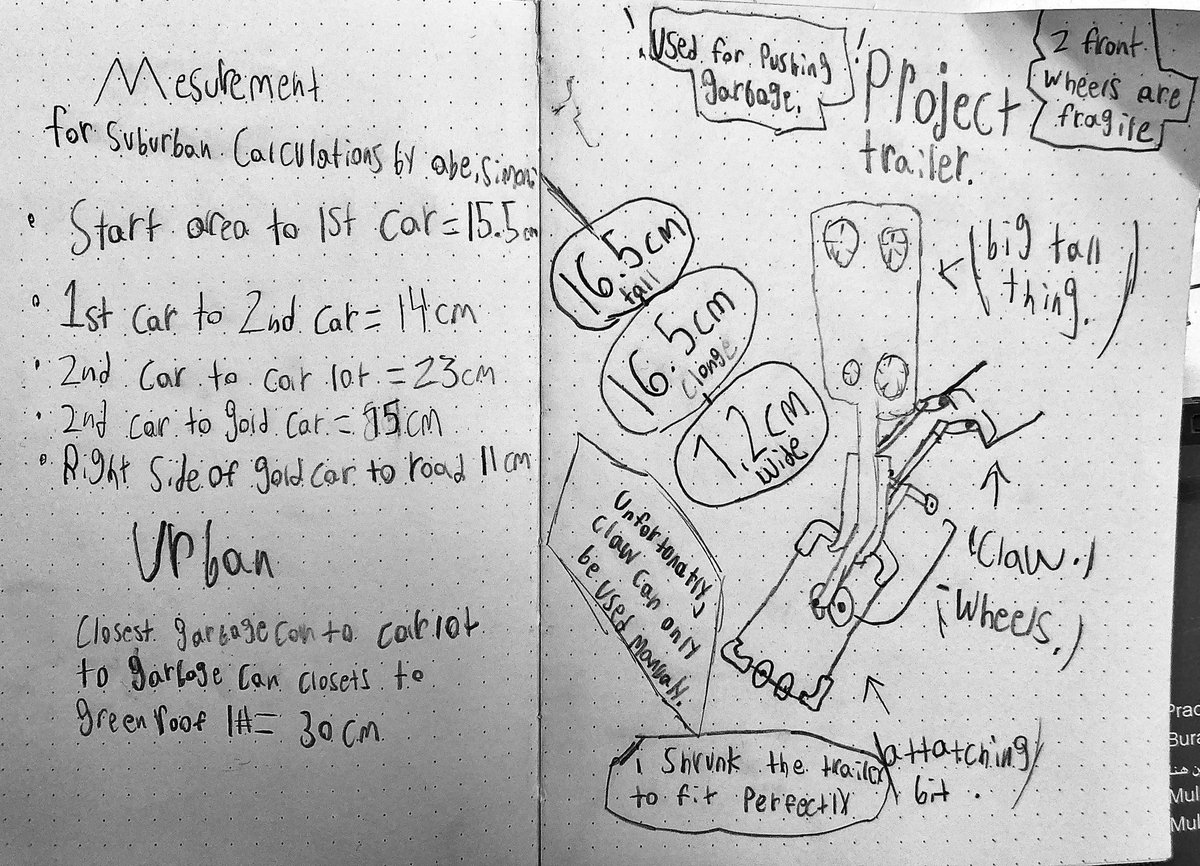 Mesurement
for suburban Calculations by abe, simon
Start area to 1st car=15.5cm
1st car to 2nd car=14cm
2nd car to car lot.=23cm
2nd car to gold car.=15cm
Right side of gold car to road 11cm
Urban
Closest garbage can to car lot
to garbage can closets to
green roof 1#= 30cm
Used for Pushing
garbage.
Project
trailer.
2 front
wheels are
fragile
16.5cm
tall
16.5cm
longe
7.2cm
wide
(big tall
thing.)
Unfortonatly,
claw can only
be used manualy.
(Claw.)
(Wheels.)
(attatching
bit.)
i Shrunk the trailer
to fit Perfectly
Prac
Bura
Mul
Mul